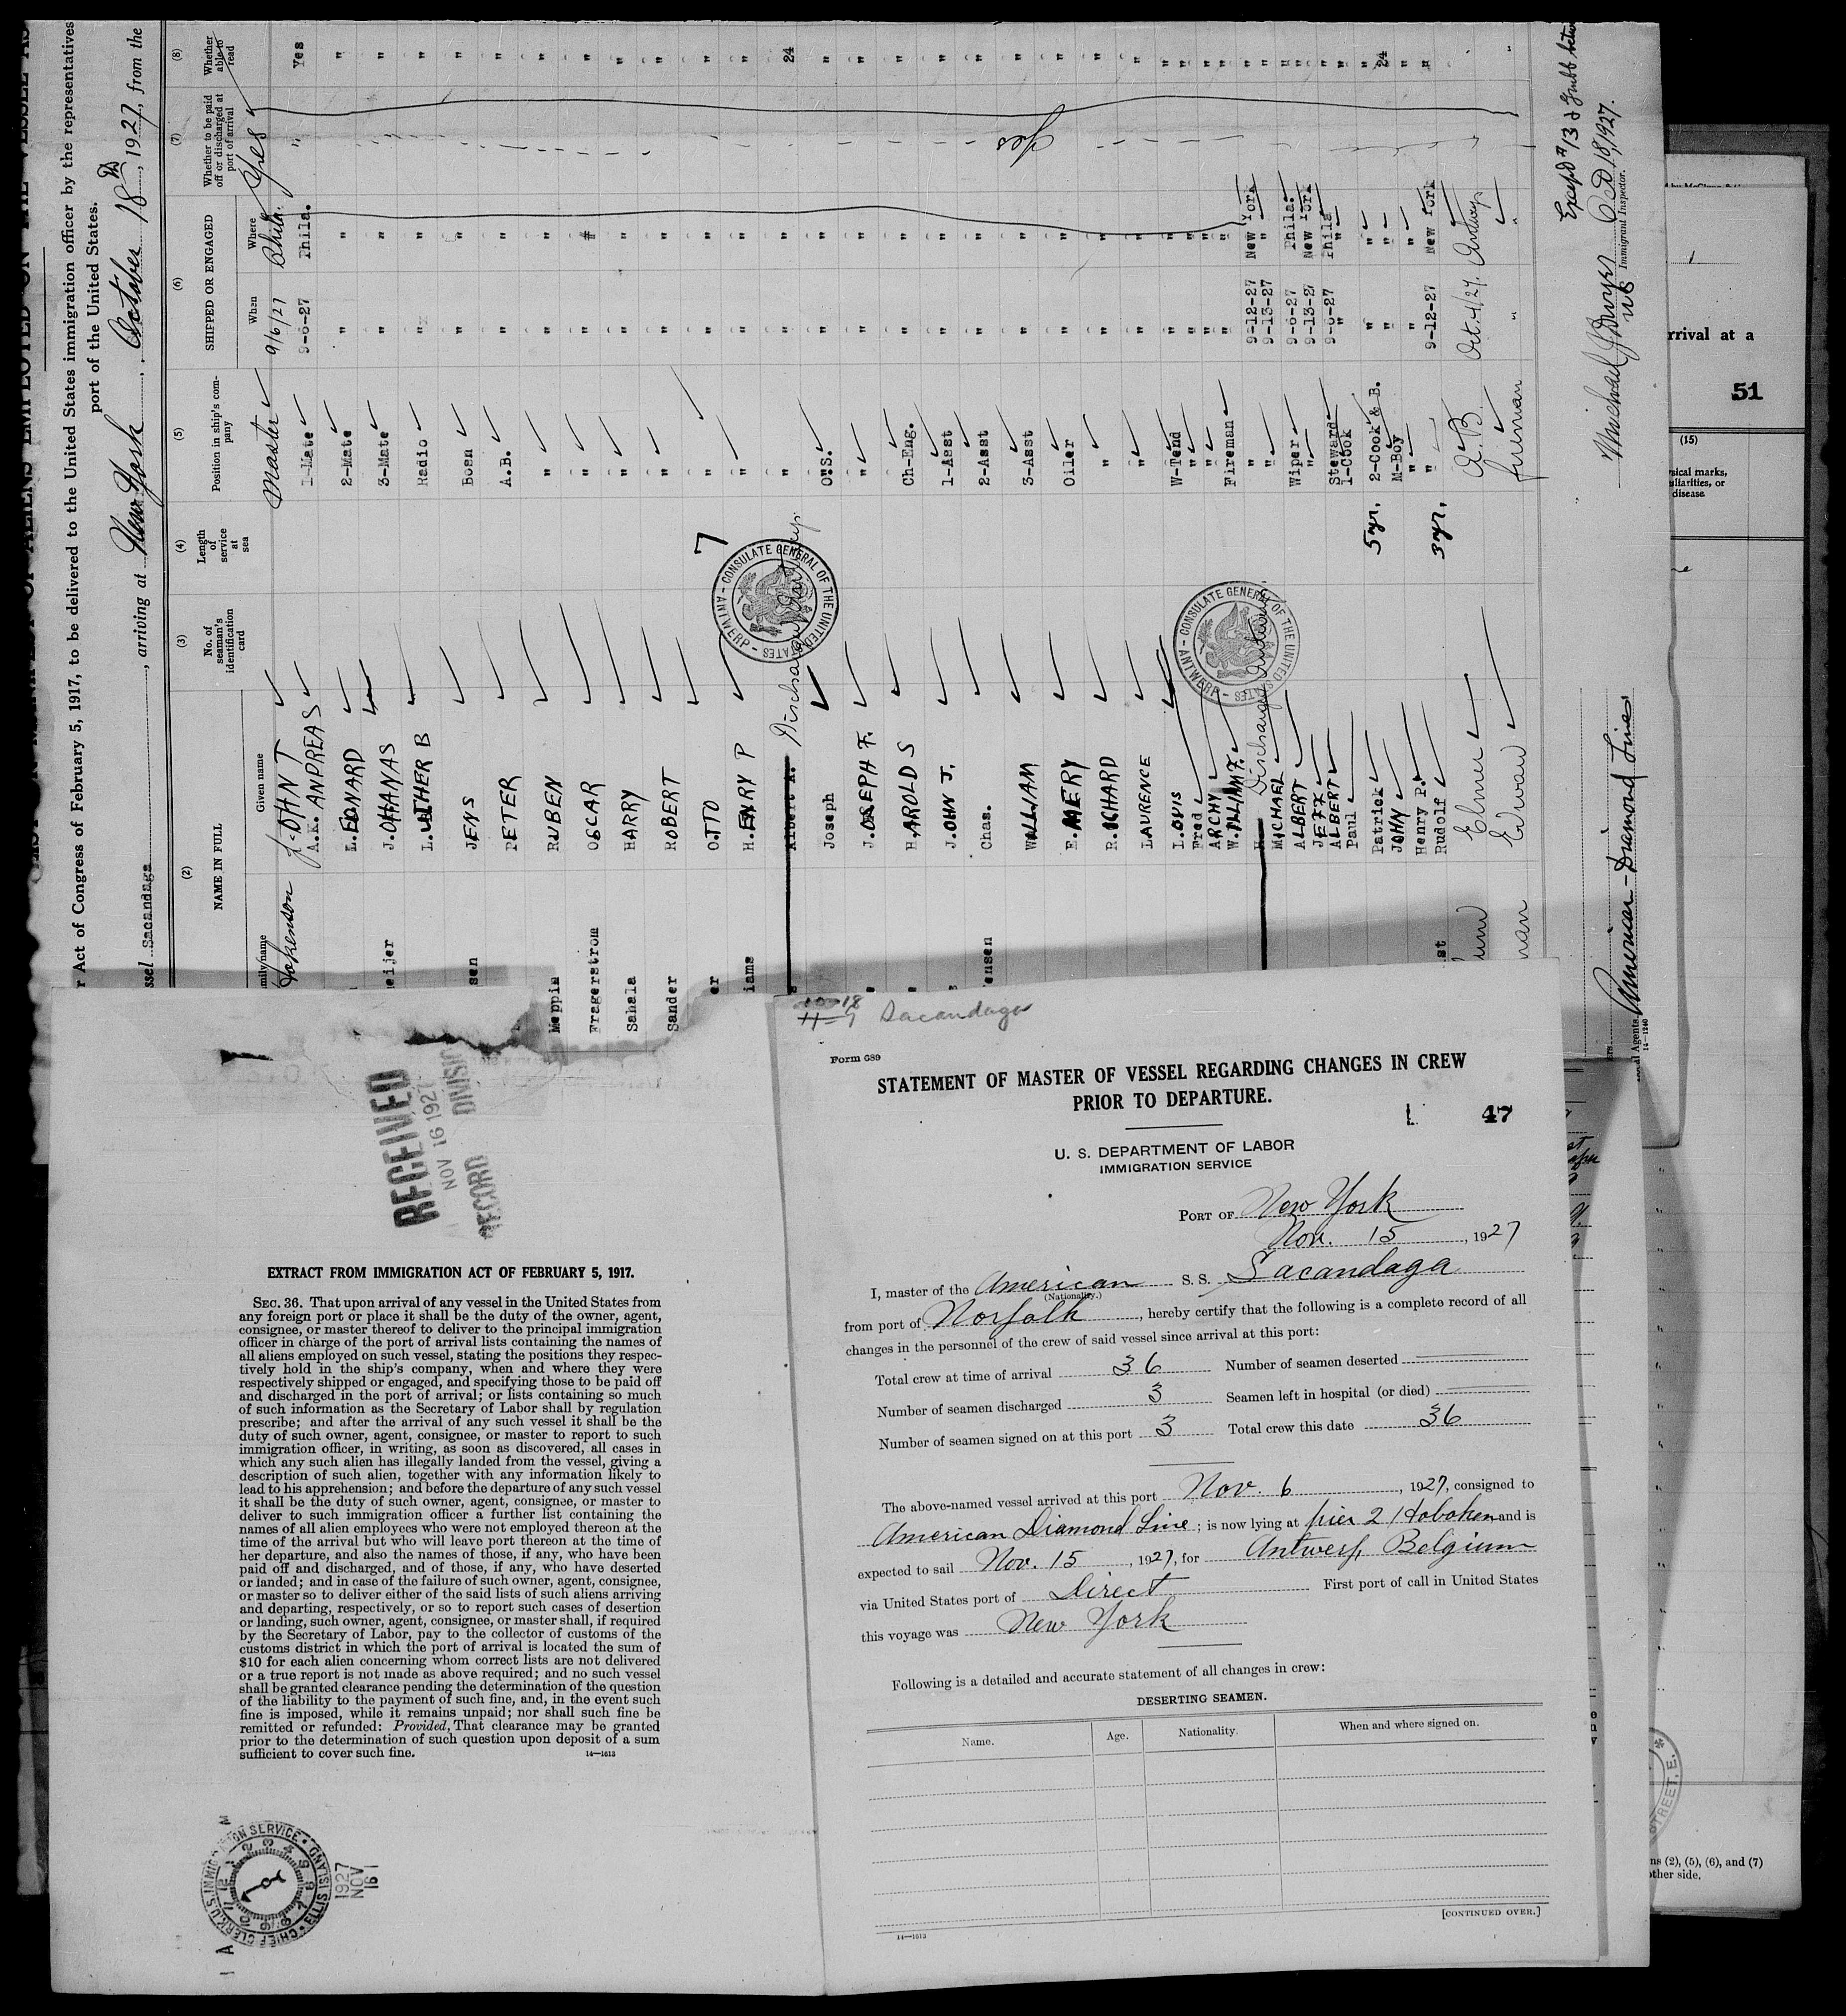 LIST OR MANIFEST OF ALIENS EMPLOYED ON THE VESSEL AS
r Act of Congress of February 5, 1917, to be delivered to the United States immigration officer by the representatives
port of the United States.
ssel Sacandaga, arriving at New York, October 18th, 1927, from the
(2) (3) (4) (5) (6) (7) (8)
NAME IN FULL
No. of seaman's identification card
Length of service at sea
Position in ship's company
SHIPPED OR ENGAGED
Whether to be paid off or discharged at port of arrival
Whether able to read
Given name
When Where
JOHN T Master 9/6/27 Phila. Yes
A.K. ANDREAS 1-Mate 9-6-27 Phila. " Yes
L. EONARD 2-Mate " " "
meijer J. OHANAS 3-Mate " " "
L. UTHER B Radio " " "
sen JENS Bosn " " "
PETER A.B. " " "
Meppin RUBEN " " " "
Fragerstrom OSCAR " " " "
Sahala HARRY " " " "
Sander ROBERT " " " "
er OTTO " " " "
iams H. ENRY P " " " "
Albert A. " " " 24
Joseph O.S. " " "
J. OSEPH F. " " " "
HAROLD S Ch-Eng. " " "
J. OHN J. 1-Asst " " "
ensen Chas. 2-Asst " " "
WILLIAM 3-Asst " " "
E. MERY Oiler " " "
R. ICHARD " " " "
LAURENCE " " " "
LOUIS W-Tend " " "
Fred " " " "
ARCHY " " " "
W. ILLIAM F. Fireman " " "
" 9-12-27 New York "
MICHAEL " 9-13-27 " "
ALBERT Wiper 9-6-27 Phila. "
JEFF " 9-13-27 New York "
ALBERT Steward 9-6-27 Phila "
Paul 1-Cook " " "
Patrick 5 yr. 2-Cook & B. " " 24
JOHN M-Boy " " "
Henry P. " " " "
Rudolf 3 yr. " 9-12-27 New York "
Elmer A.B. Oct. 4/27. Antwerp
Edward fireman " "
Yes
7
CONSULATE GENERAL OF THE UNITED STATES - ANTWERP
Discharged Antwerp.
CONSULATE GENERAL OF THE UNITED STATES - ANTWERP
Discharged Antwerp
Oct 18, 1927.
Immigrant Inspector.
American - Diamond Lines
14—1240
rrival at a
51
(15)
ysical marks,
uliarities, or
disease
ns (2), (5), (6), and (7)
other side.
STREET, E.
RECEIVED
NOV 16 1927
RECORD DIVISION
EXTRACT FROM IMMIGRATION ACT OF FEBRUARY 5, 1917.
SEC. 36. That upon arrival of any vessel in the United States from
any foreign port or place it shall be the duty of the owner, agent,
consignee, or master thereof to deliver to the principal immigration
officer in charge of the port of arrival lists containing the names of
all aliens employed on such vessel, stating the positions they respec-
tively hold in the ship's company, when and where they were
respectively shipped or engaged, and specifying those to be paid off
and discharged in the port of arrival; or lists containing so much
of such information as the Secretary of Labor shall by regulation
prescribe; and after the arrival of any such vessel it shall be the
duty of such owner, agent, consignee, or master to report to such
immigration officer, in writing, as soon as discovered, all cases in
which any such alien has illegally landed from the vessel, giving a
description of such alien, together with any information likely to
lead to his apprehension; and before the departure of any such vessel
it shall be the duty of such owner, agent, consignee, or master to
deliver to such immigration officer a further list containing the
names of all alien employees who were not employed thereon at the
time of the arrival but who will leave port thereon at the time of
her departure, and also the names of those, if any, who have been
paid off and discharged, and of those, if any, who have deserted
or landed; and in case of the failure of such owner, agent, consignee,
or master so to deliver either of the said lists of such aliens arriving
and departing, respectively, or so to report such cases of desertion
or landing, such owner, agent, consignee, or master shall, if required
by the Secretary of Labor, pay to the collector of customs of the
customs district in which the port of arrival is located the sum of
$10 for each alien concerning whom correct lists are not delivered
or a true report is not made as above required; and no such vessel
shall be granted clearance pending the determination of the question
of the liability to the payment of such fine, and, in the event such
fine is imposed, while it remains unpaid; nor shall such fine be
remitted or refunded: Provided, That clearance may be granted
prior to the determination of such question upon deposit of a sum
sufficient to cover such fine.
14—1613
CHIEF CLERK, U.S. IMMIGRATION SERVICE ELLIS ISLAND
1927 NOV 16
10-18
Sacandaga
Form 689
STATEMENT OF MASTER OF VESSEL REGARDING CHANGES IN CREW
PRIOR TO DEPARTURE.
47
U. S. DEPARTMENT OF LABOR
IMMIGRATION SERVICE
PORT OF New York
Nov. 15, 1927
I, master of the American S. S. Sacandaga
(Nationality.)
from port of Norfolk, hereby certify that the following is a complete record of all
changes in the personnel of the crew of said vessel since arrival at this port:
Total crew at time of arrival 36 Number of seamen deserted
Number of seamen discharged 3 Seamen left in hospital (or died)
Number of seamen signed on at this port 3 Total crew this date 36
The above-named vessel arrived at this port Nov. 6, 1927, consigned to
American Diamond Line; is now lying at pier 2 Hoboken and is
expected to sail Nov. 15, 1927, for Antwerp, Belgium
via United States port of Direct First port of call in United States
this voyage was New York
Following is a detailed and accurate statement of all changes in crew:
DESERTING SEAMEN.
Name. Age. Nationality. When and where signed on.
[CONTINUED OVER.]
14—1613